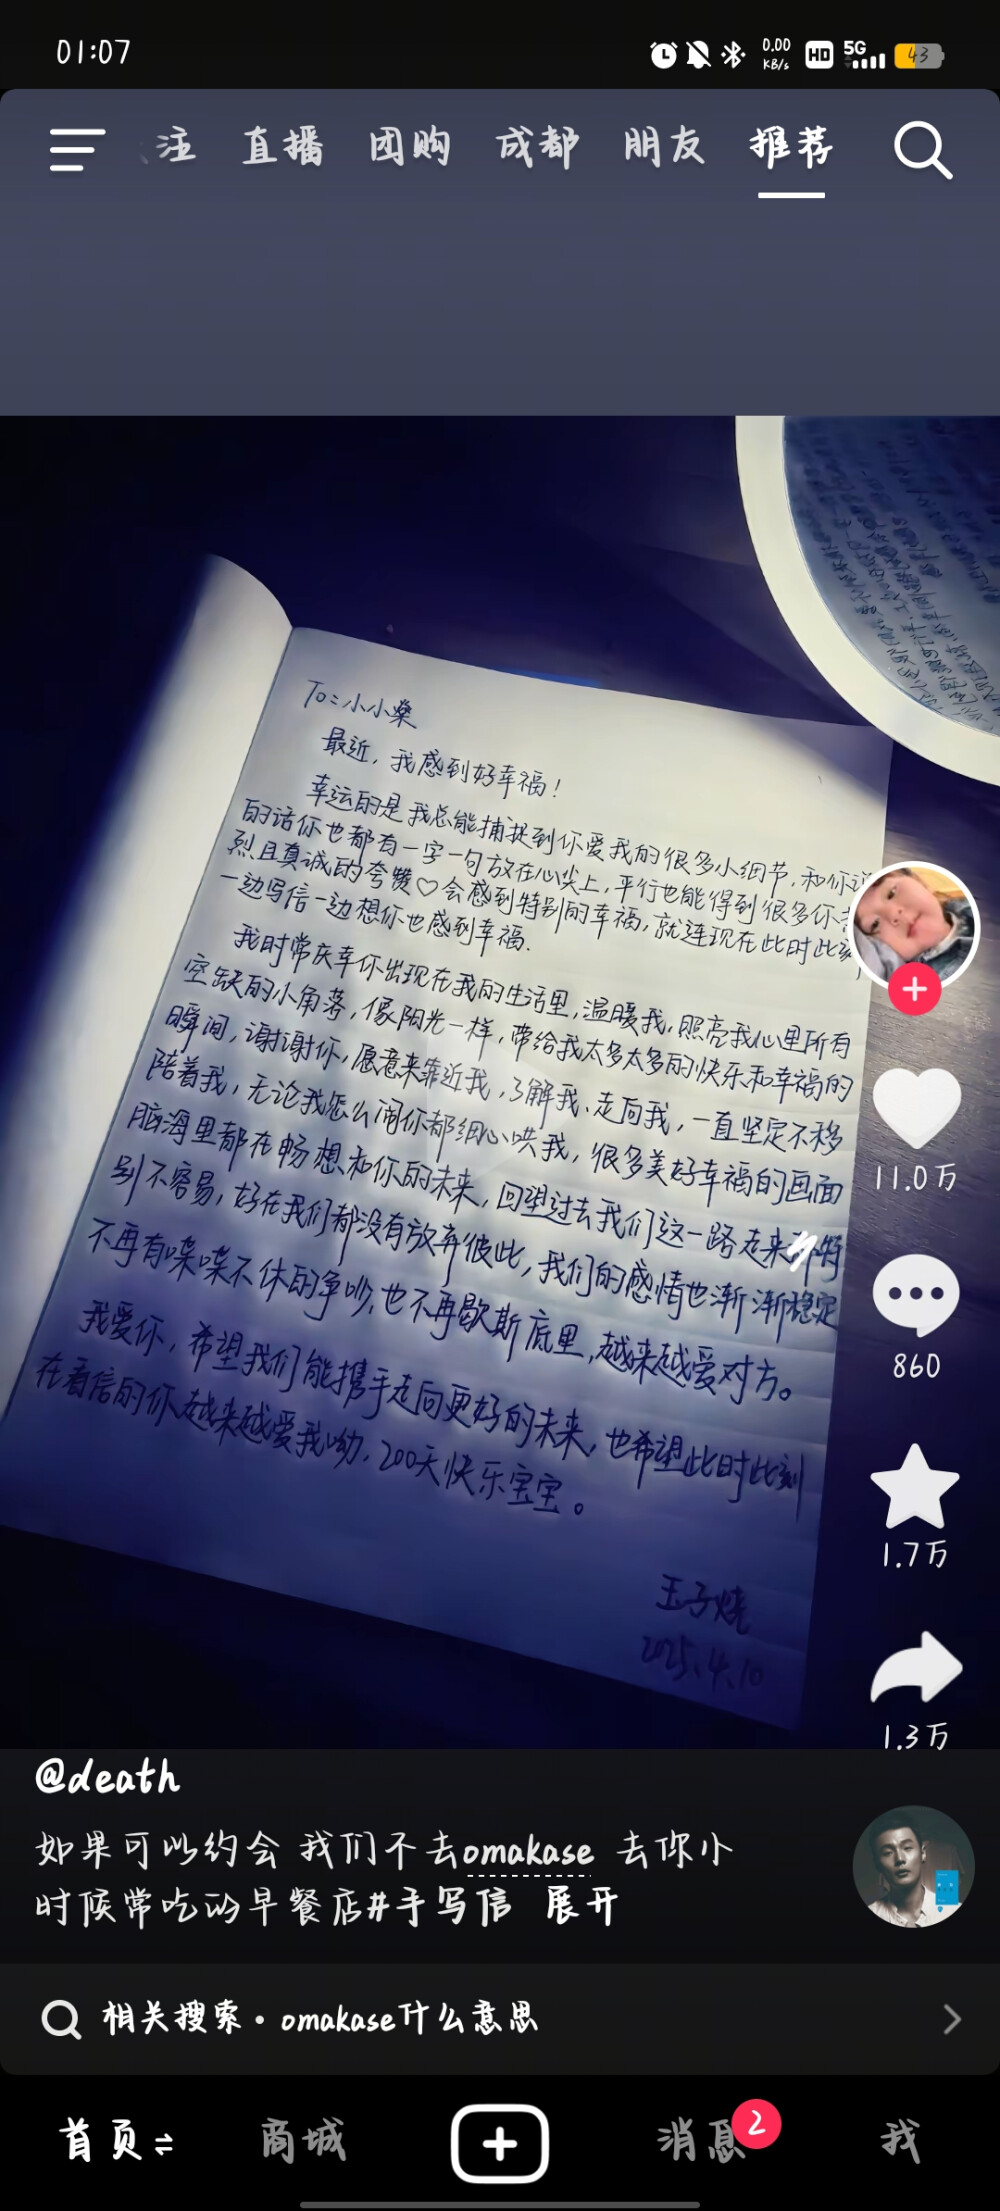 01:07
0.00
KB/s
HD
5G
43
注 直播 团购 成都 朋友 推荐
To:小小燊
最近,我感到好幸福!
幸运的是我总能捕捉到你爱我的很多小细节,和你说
的话你也都有一字一句放在心尖上,平行也能得到很多你
烈且真诚的夸赞♡会感到特别的幸福,就连现在此时此刻,
一边写信一边想你也感到幸福.
我时常庆幸你出现在我的生活里,温暖我,照亮我心里所有
空缺的小角落,像阳光一样,带给我太多太多的快乐和幸福的
瞬间,谢谢你,愿意来靠近我,了解我、走向我,一直坚定不移
陪着我,无论我怎么闹你都细心哄我,很多美好幸福的画面
脑海里都在畅想和你的未来,回望过去我们这一路走来特
别不容易,好在我们都没有放弃彼此,我们的感情也渐渐稳定
不再有喋喋不休的争吵,也不再歇斯底里,越来越爱对方。
我爱你,希望我们能携手走向更好的未来,也希望此时此刻
在看信的你越来越爱我呦,200天快乐宝宝。
玉子烧
2025.4.10
11.0万
860
1.7万
1.3万
@death
如果可以约会 我们不去omakase 去你小
时候常吃的早餐店#手写信 展开
相关搜索·omakase什么意思
首页 商城 消息 2 我